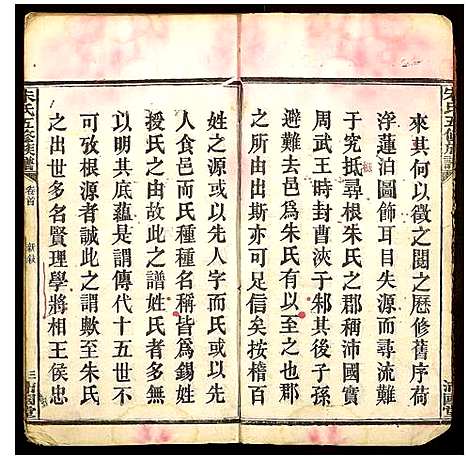 朱氏五修族譜
來其何以徵之閱之曆修舊序荷
浮蓮泊圖飾耳目失源而尋流難
于究抵尋根朱氏之郡稱沛國實
周武王時封曹浹于邾其後子孫
以出去邑為朱氏有以至之也郡
之所由出斯亦可足信矣按楷百
姓之源或以先人字而氏或以先
人食邑而氏種種名稱皆為錫姓
授氏之由故此之譜姓氏者多無
以明其底蘊是謂傳代十五世不
可攷根源者誠此之謂歟至朱氏
之出世多名賢理學將相王侯忠
朱氏五修族譜
卷首
三
沛國堂